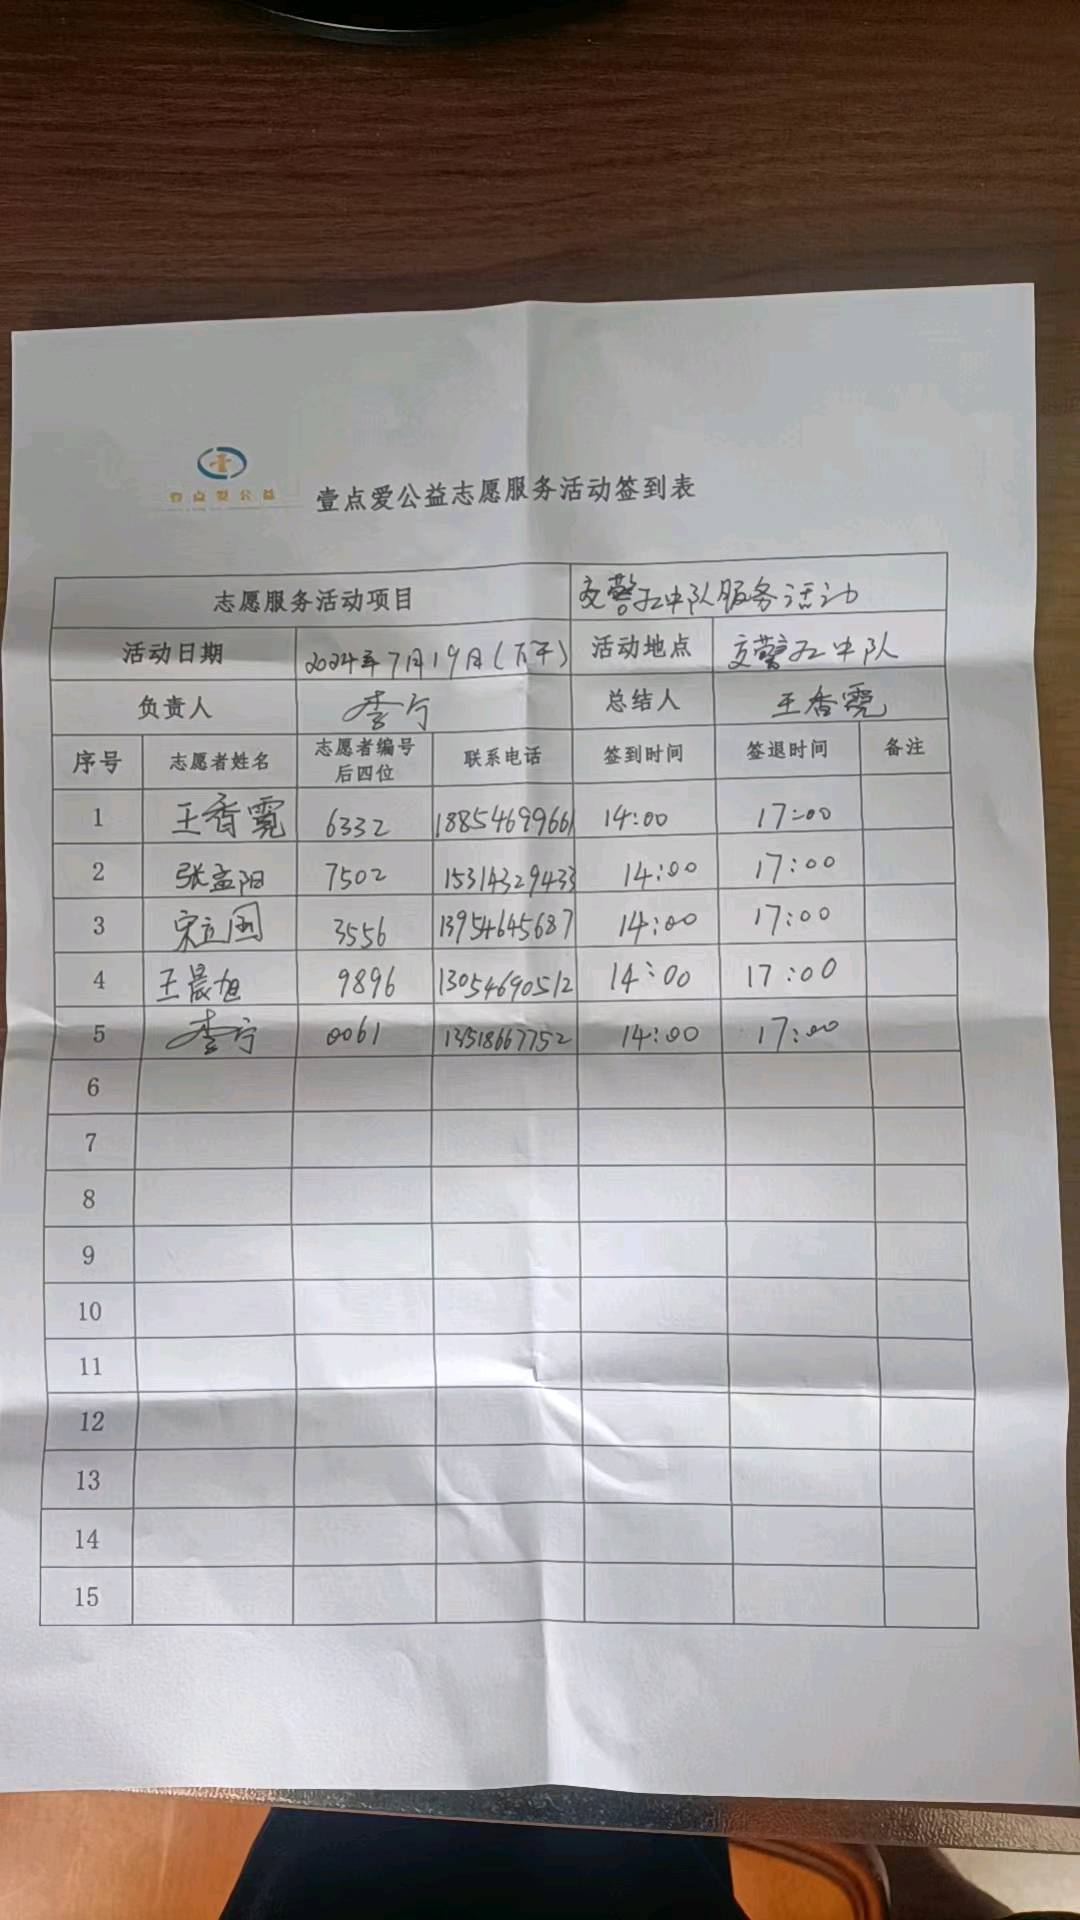 壹点爱公益
壹点爱公益志愿服务活动签到表
志愿服务活动项目 交警五中队服务活动
活动日期 2024年7月19日(下午) 活动地点 交警五中队
负责人 李宁 总结人 王香霓
序号 志愿者姓名 志愿者编号后四位 联系电话 签到时间 签退时间 备注
1 王香霓 6332 18854699661 14:00 17:00
2 张孟阳 7502 15314329433 14:00 17:00
3 宋立国 3556 13954645687 14:00 17:00
4 王晨旭 9896 13054690512 14:00 17:00
5 李宁 0061 13518667752 14:00 17:00
6
7
8
9
10
11
12
13
14
15